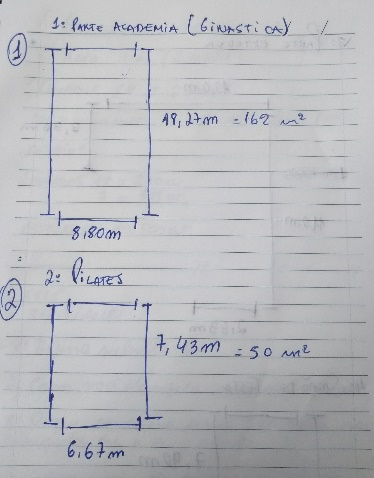 1
1ª PARTE ACADEMIA (GINASTICA)
18,27m = 162 m²
8,80m
2
2ª PILATES
7,43m = 50 m²
6,67m